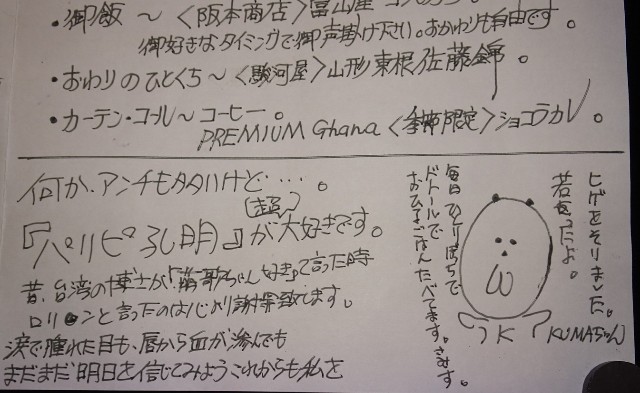 ・御飯 ～ 〈阪本商店〉富山産
御好きなタイミングで御声掛け下さい。おかわりも自由です。
・おわりのひとくち～〈駿河屋〉山形東根佐藤錦。
・カーテン・コール～ コーヒー。
PREMIUM Ghana〈季節限定〉ショコラカレ。
何か、アンチも多いけど‥‥。
(超～)
『パリピ孔明』が大好きです。
昔、台湾の博士が「 歌ちゃん好き」って言った時
ロリ ンと言ったのは心より謝罪致してます。
涙で腫れた目も、唇から血が滲んでも
まだまだ明日を信じてみよう これからも私を
毎日ひとりぼっちで
ドトールで
おひるごはんたべてます。さみす。
ヒゲをそりました。
若 ったよ。
KUMAちゃん